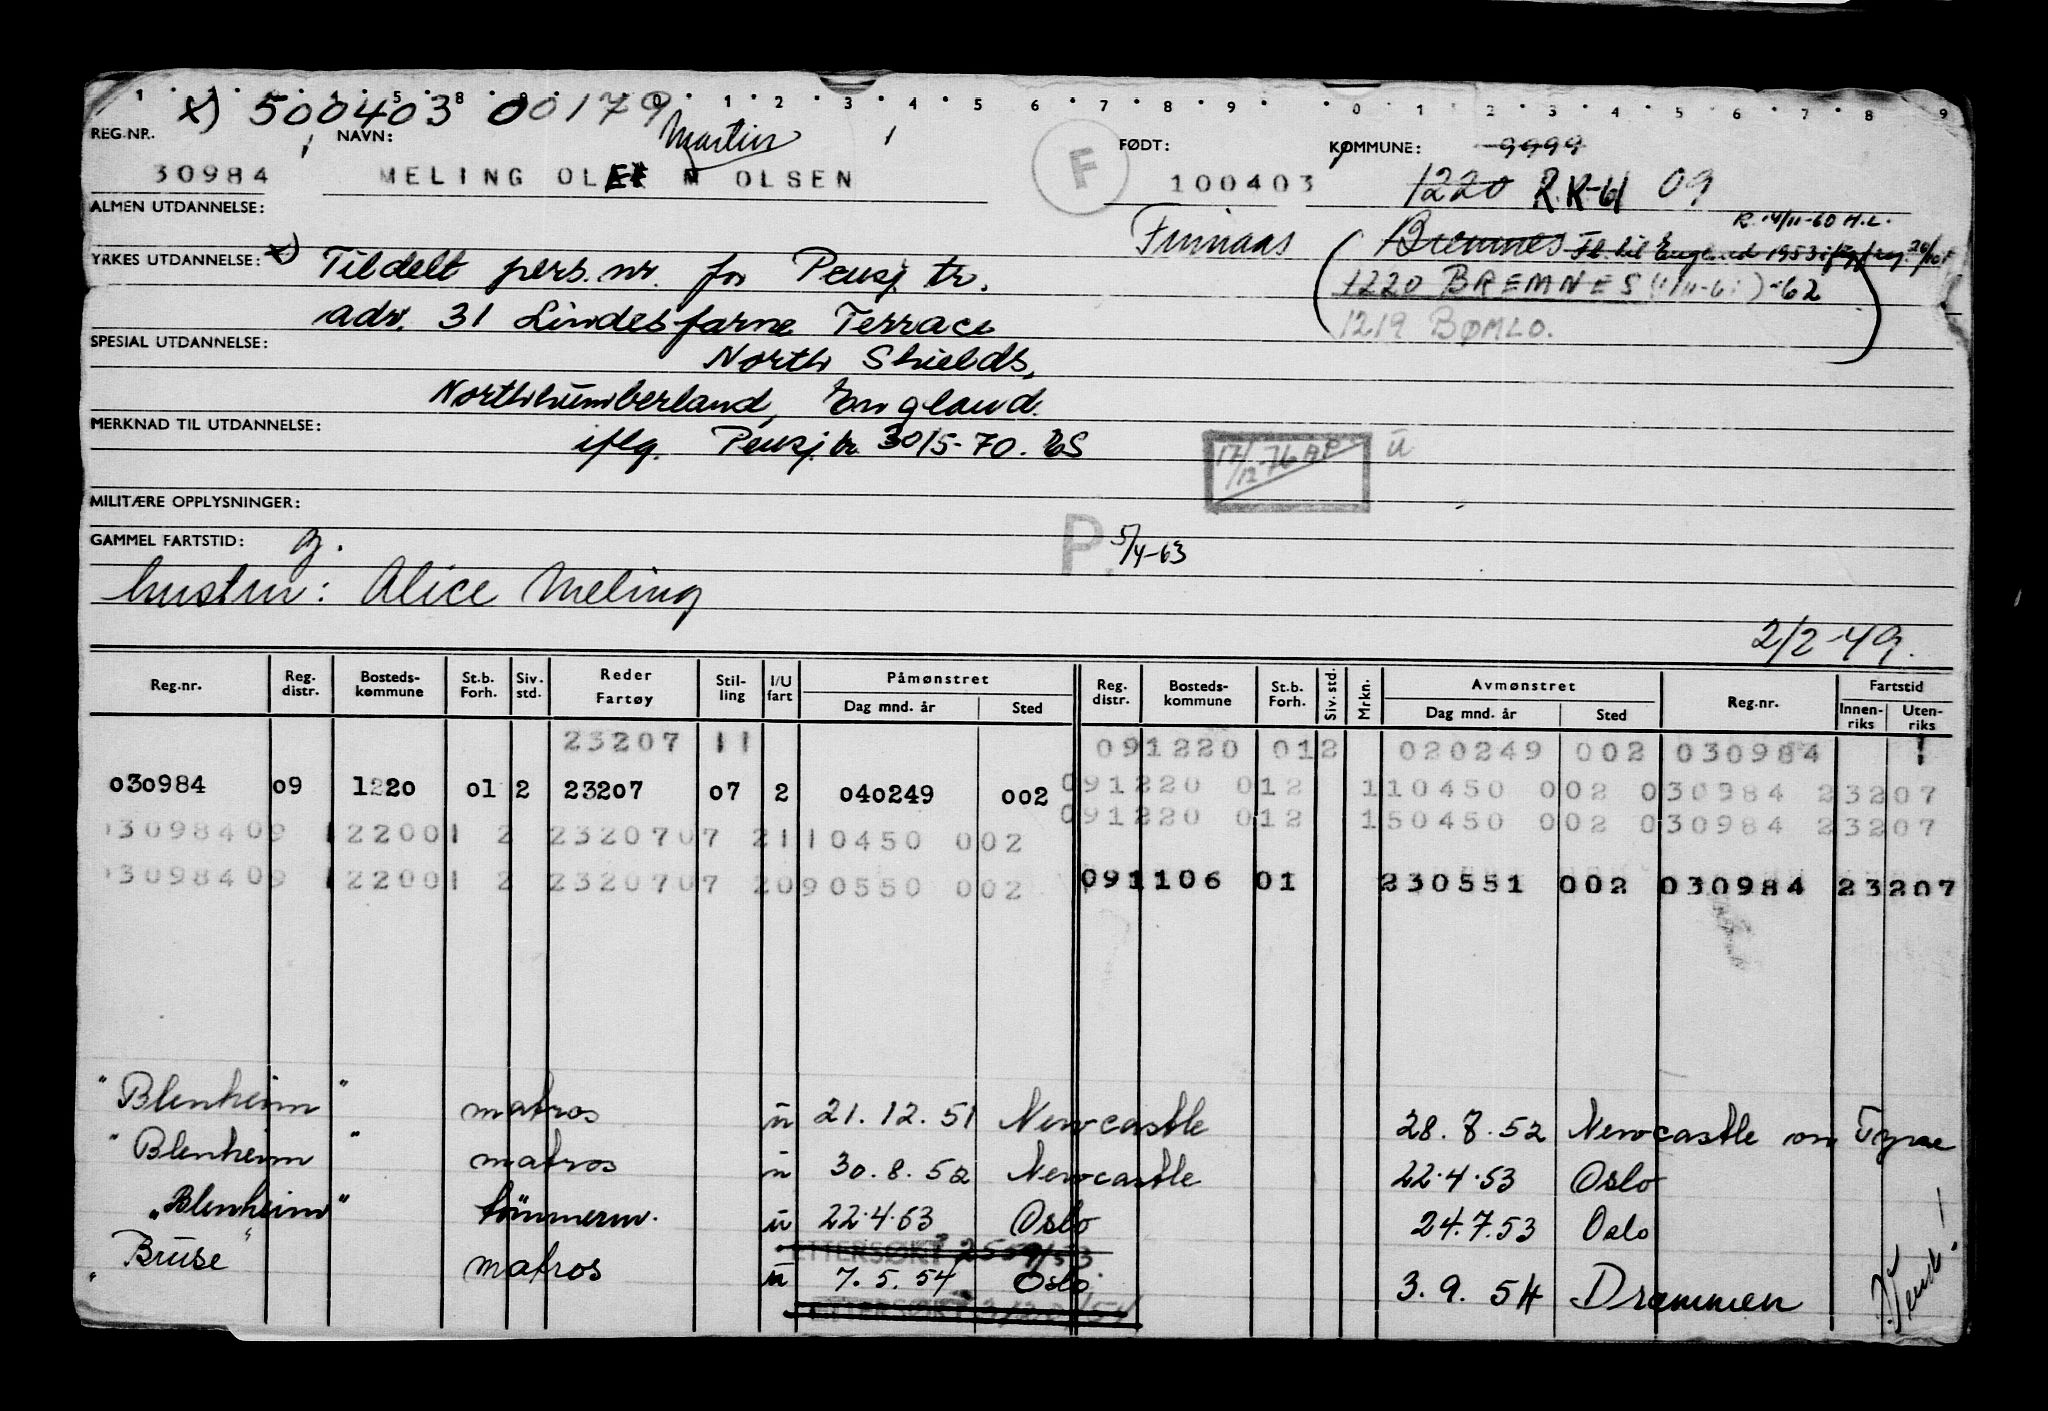 1 2 3 4 5 6 7 8 9 0 1 2 3 4 5 6 7 8 9
x) 500403 00179
REG.NR. NAVN: Martin FØDT: KOMMUNE: 9999
30984 MELING OLAF M OLSEN F 100403 1220 R.K-61 09
ALMEN UTDANNELSE:
R. 14/11-60 H.L.
Finnaas Bremnes Fl. til England 1953 iflg.
YRKES UTDANNELSE: x) Tildelt pers.nr. for Pensj. tr.
1220 BREMNES (1/11-61) -62
adr. 31 Lindesfarne Terrace
1219 BØMLO.
SPESIAL UTDANNELSE:
North Shields,
Northumberland, England.
MERKNAD TIL UTDANNELSE:
iflg. Pensj.tr 30/5-70. ES
17/12-76 AP ü
MILITÆRE OPPLYSNINGER:
GAMMEL FARTSTID: g. P. 5/4-63
hustru: Alice Meling
2/2-49.
Reg.nr. Reg. distr. Bosteds- kommune St.b. Forh. Siv. std. Reder Fartøy Stil- ling I/U fart Påmønstret Dag mnd. år Sted Reg. distr. Bosteds- kommune St.b. Forh. Siv. std. Mrkn. Avmønstret Dag mnd. år Sted Reg.nr. Fartstid Innen- riks Uten- riks
23207 11 091220 012 020249 002 030984
030984 09 1220 01 2 23207 07 2 040249 002 091220 012 110450 002 030984 23207
091220 012 150450 002 030984 23207
03098409 122001 2 2320707 2110450 002
03098409 122001 2 2320707 2090550 002 091106 01 230551 002 030984 23207
"Blenheim" matros ü 21.12.51 Newcastle 28.8.52 Newcastle on Tyne
"Blenheim" matros ü 30.8.52 Newcastle 22.4.53 Oslo
"Blenheim" tømmerm. ü 22.4.53 Oslo 24.7.53 Oslo
ETTERSØKT 25 9/53
"Bruse" matros ü 7.5.54 Oslo 3.9.54 Drammen
ETTERSØKT